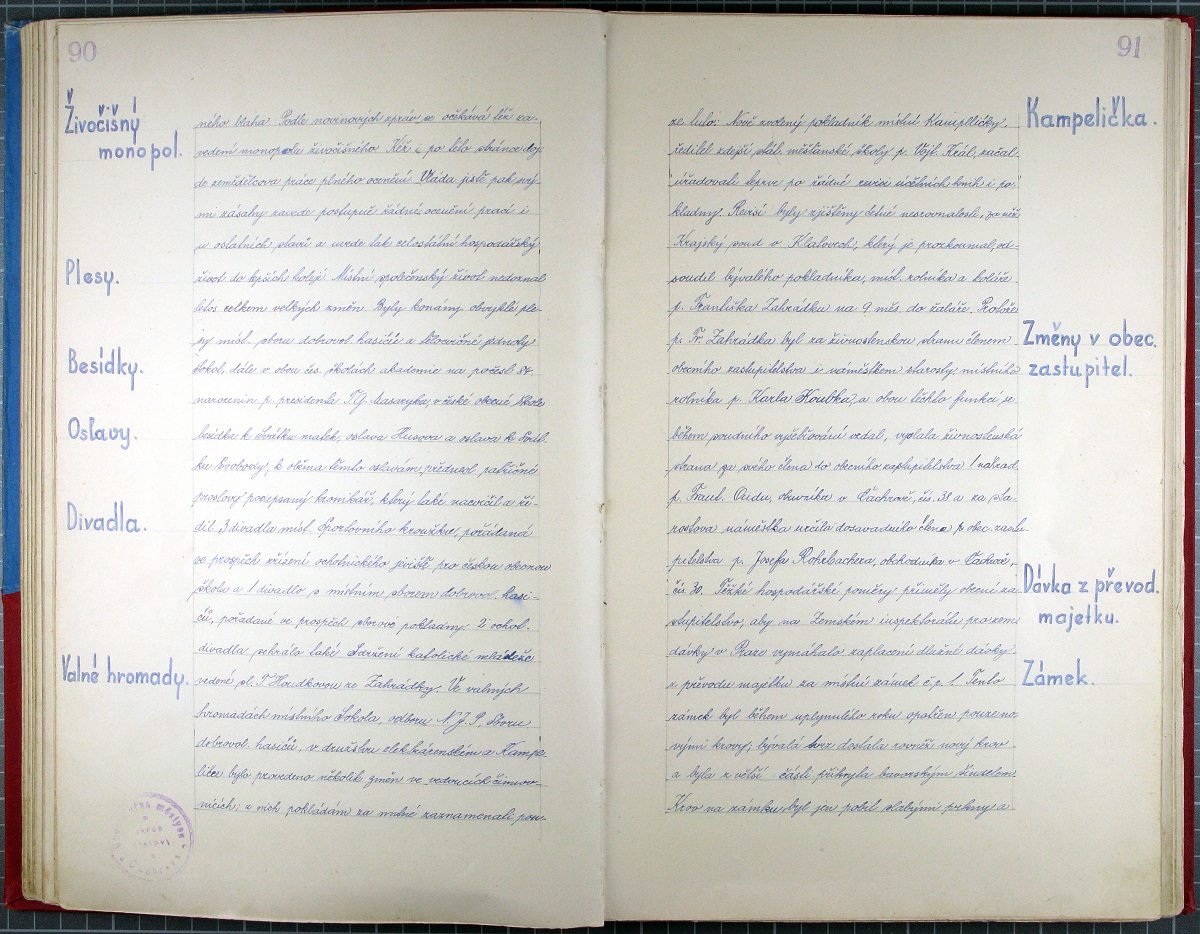 90
Živočišný
monopol.
Plesy.
Besídky.
Oslavy.
Divadla.
Valné hromady.
ného blaha. Podle novinových zpráv se očekává též za-
vedení monopolu živočišného. Kéž i po této stránce doj-
de zemědělcova práce plného ocenění. Vláda jistě pak svý-
mi zásahy zavede postupně řádné ocenění prací i
u ostatních stavů a uvede tak celostátní hospodářský
život do lepších kolejí. Místní společenský život nedoznal
letos celkem velkých změn. Byly konány obvyklé ple-
sy míst. sboru dobrovol. hasičů a tělocvičné jednoty
Sokol, dále v obou čes. školách akademie na počest 84.
narozenin p. presidenta T. G. Masaryka, v české obecné škole
besídka k Svátku matek, oslava Husova a oslava k Svát-
ku Svobody, k oběma těmto oslavám přednesl příležitostné
proslovy podepsaný kronikář, který také nacvičil a ří-
dil 3 divadla míst. Sportovního kroužku, pořádaná
ve prospěch zřízení ochotnického jeviště pro českou obecnou
školu a 1 divadlo s místním sborem dobrovol. hasi-
čů, pořádané ve prospěch sborové pokladny. 2 ochot.
divadla sehrálo také Sdružení katolické mládeže
vedené sl. T. Houdkovou ze Zahrádky. Ve valných
hromadách místního Sokola, odboru N. J. P., Sboru
dobrovol. hasičů, v družstvu elektrárenském a Kampe-
ličce bylo provedeno několik změn ve vedoucích činov-
nících; z nich pokládám za nutné zaznamenati pou-
91
Kampelička.
Změny v obec.
zastupitel.
Dávka z převod.
majetku.
Zámek.
ze tuto: Nově zvolený pokladník místní Kampeličky,
ředitel zdejší stát. měšťanské školy p. Vojt. Král, začal
úřadovati teprve po řádné revisi účetních knih i po-
kladny. Revisí byly zjištěny četné nesrovnalosti, za něž
Krajský soud v Klatovech, který je prozkoumal, od-
soudil bývalého pokladníka, míst. rolníka a koláře
p. Františka Zahrádku na 9 měs. do žaláře. Protože
p. Fr. Zahrádka byl za živnostenskou stranu členem
obecního zastupitelstva i náměstkem starosty, místního
rolníka p. Karla Houbka, a obou těchto funkcí se
během soudního vyšetřování vzdal, vyslala živnostenská
strana za svého člena do obecního zastupitelstva 1. náhrad.
p. Frant. Oudu, obuvníka v Čachrově, čís. 38 a za sta-
rostova náměstka určila dosavadního člena obec. zastu-
pitelstva p. Josefa Rohrbachera, obchodníka v Čachrově,
čís. 30. Těžké hospodářské poměry přiměly obecní za-
stupitelstvo, aby na Zemském inspektorátu pro zem.
dávky v Praze vymáhalo zaplacení dlužné dávky
z převodu majetku za místní zámek č. p. 1. Tento
zámek byl během uplynulého roku opatřen pouze no-
vými krovy; bývalá tvrz dostala rovněž nový krov
a byla z větší části přikryta bavorským šindelem.
Krov na zámku byl jen pobit slabými prkny a